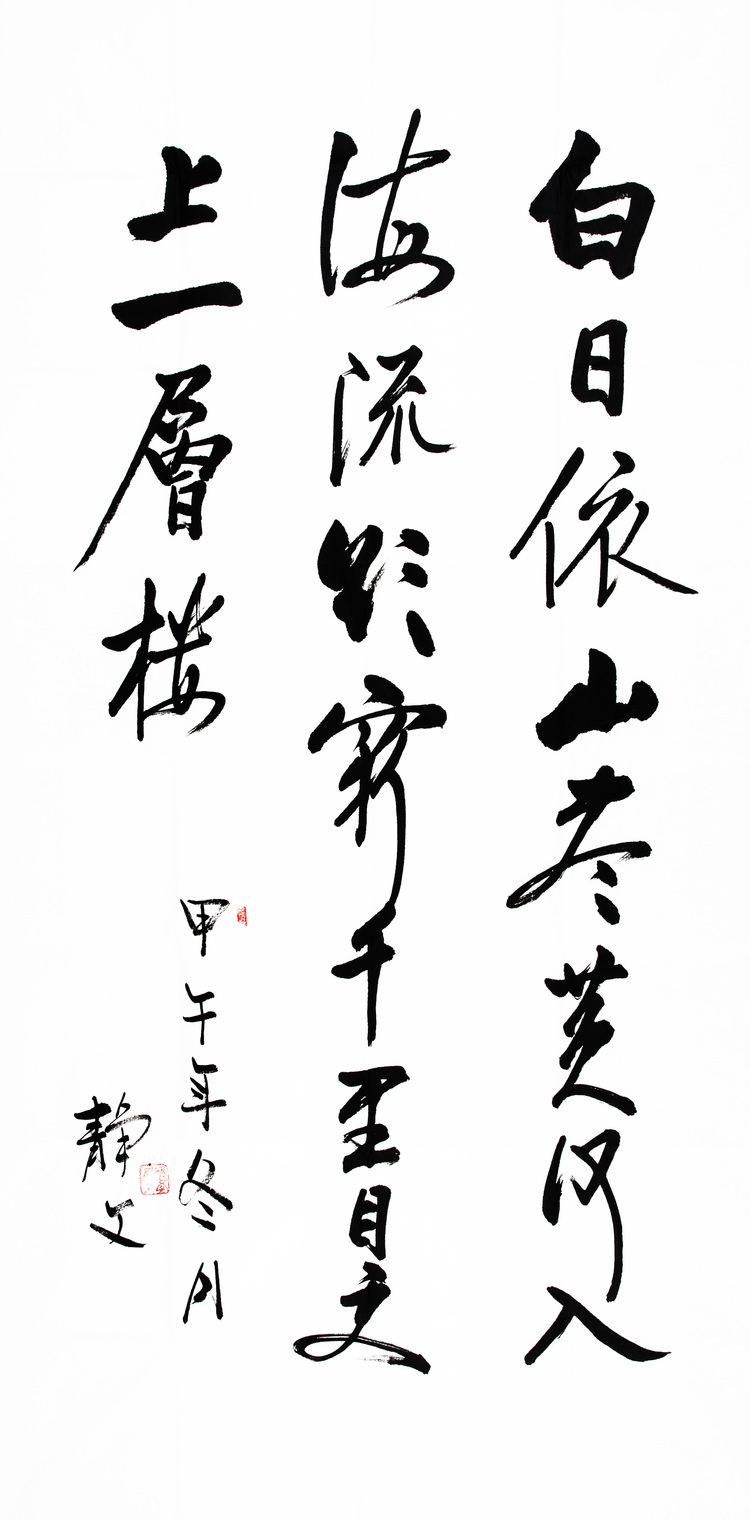 白日依山尽黄河入
海流欲穷千里目更
上一層楼
甲午年冬月
静文